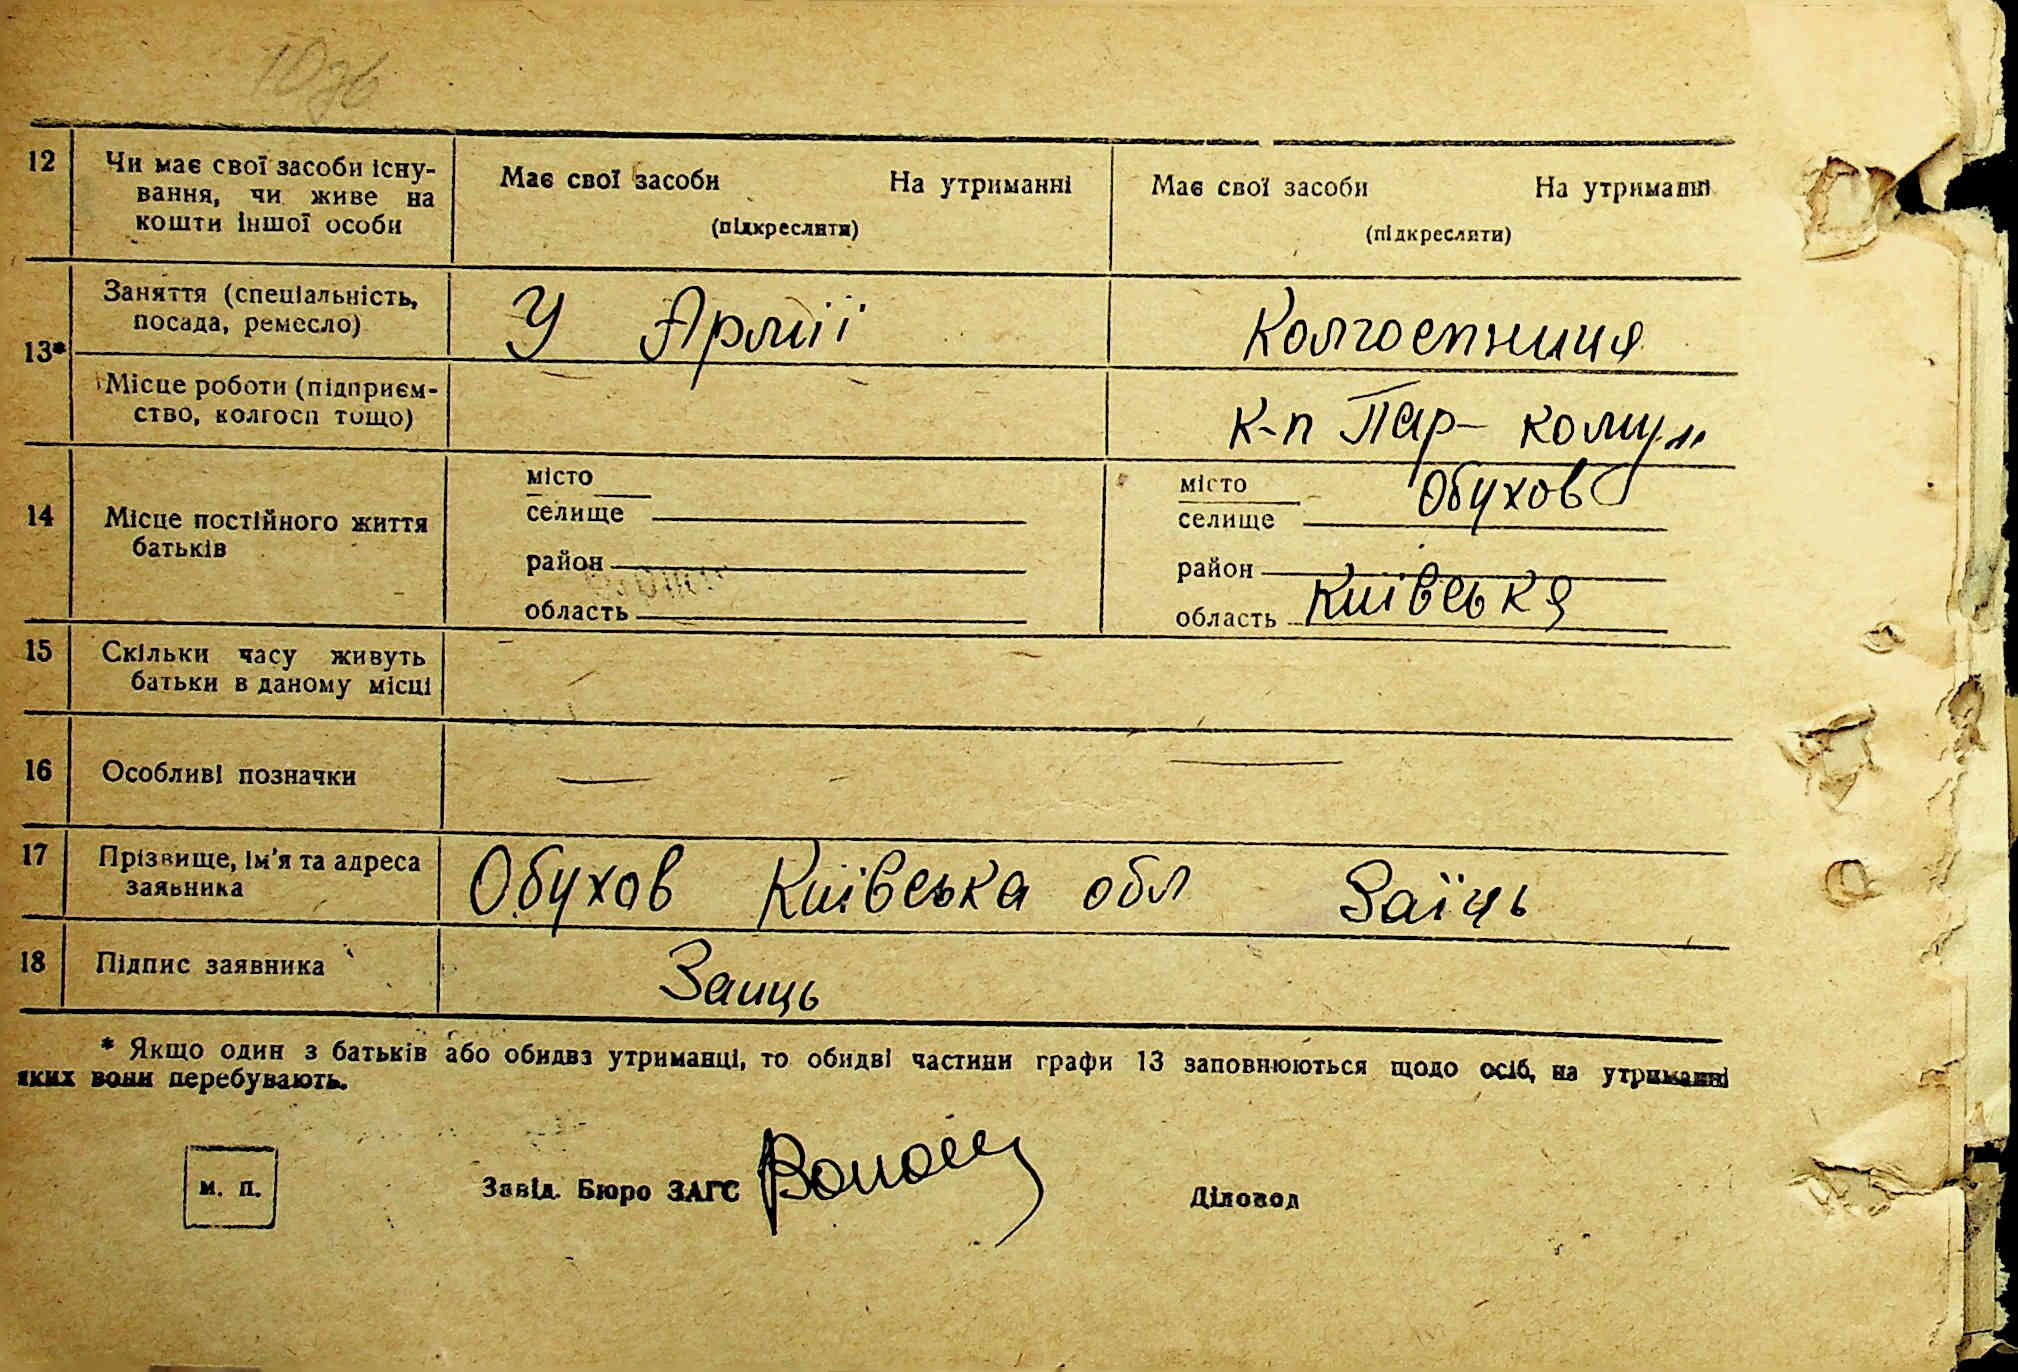 12 Чи має свої засоби існу- Має свої засоби На утриманні Має свої засоби На утриманні
вання, чи живе на
кошти іншої особи (підкреслити) (підкреслити)
Заняття (спеціальність, У Армії Колгоспниця
посада, ремесло)
13*
Місце роботи (підприєм- к-п Пар- комун
ство, колгосп тощо)
місто місто Обухов
14 Місце постійного життя селище селище
батьків
район район
область область Київська
15 Скільки часу живуть
батьки в даному місці
16 Особливі позначки
17 Прізвище, ім'я та адреса Обухов Київська обл Заїць
заявника
18 Підпис заявника Заиць
* Якщо один з батьків або обидва утриманці, то обидві частини графи 13 заповнюються щодо осіб, на утриманні
яких вони перебувають.
М. П. Завід. Бюро ЗАГС Діловод